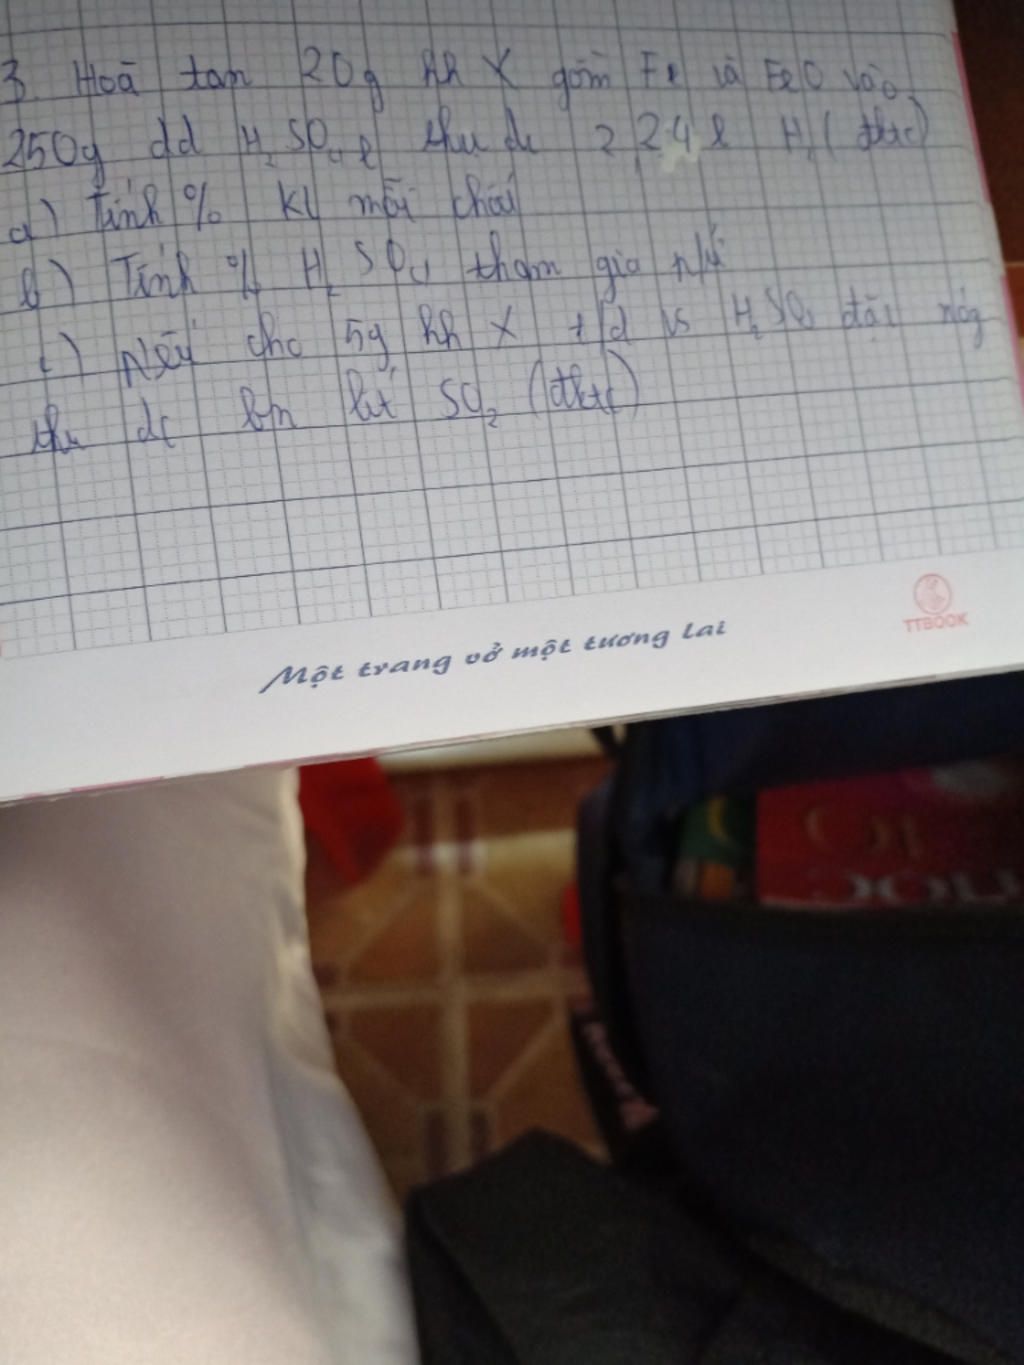 3. Hoà tan 20g hh X gồm Fe và FeO vào
250g dd H2SO4 l thu đc 2,24 l H2 (đktc)
a) Tính % KL mỗi chất
b) Tính % H2SO4 tham gia p/ứ
c) Nếu cho 5g hh X t/d vs H2SO4 đặc nóng
thu đc bn lít SO2 (đktc)
Một trang vở một tương lai
TTBOOK